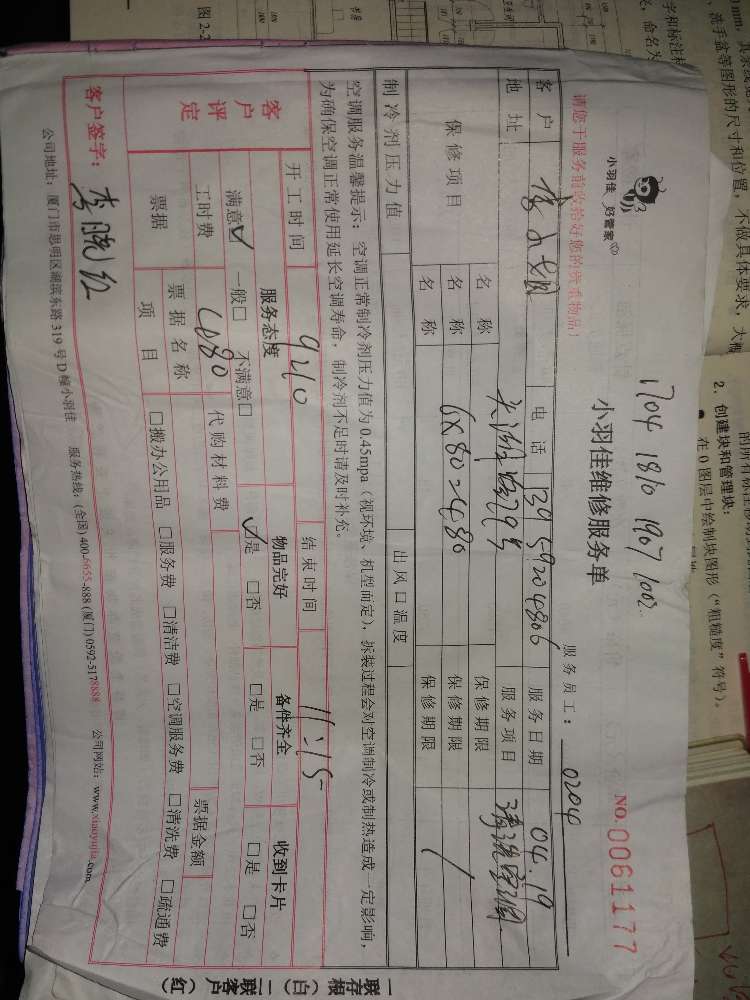 1704 1810 1907 1002
小羽佳 好管家
小羽佳维修服务单
服务员工： 0204
NO.0061177
请您于服务前收拾好您的贵重物品！
客户 电话 139 59204806 服务日期 04.19
地址 服务项目 清洗空调
保修项目 名称 保修期限
名称 6×80=480 保修期限
名称 保修期限
制冷剂压力值 出风口温度
空调服务温馨提示：空调正常制冷剂压力值为0.45mpa（视环境、机型而定），拆装过程会对空调制冷或制热造成一定影响，
为确保空调正常使用延长空调寿命，制冷剂不足时请及时补充。
客户评定 开工时间 9:10 结束时间 11:15
服务态度 物品完好 备件齐全 收到卡片
满意☑ 一般□ 不满意□ ☑是 □否 □是 □否 □是 □否
工时费 480 代购材料费 票据金额
票据 票据名称
项目 □搬办公用品 □服务费 □清洁费 □空调服务费 □清洗费 □疏通费
客户签字： 李晓红
公司地址：厦门市思明区湖滨东路319号D幢小羽佳 服务热线：(全国) 400-6655-888 (厦门) 0592-5178888 公司网站：www.xiaoyujia.com
一联存根（白） 二联客户（红）
2．创建块和管理块：
在0图层中绘制块图形（“粗糙度”符号）。
洗手盆等图形的尺寸和位置，不做具体要求，大概
图2-2